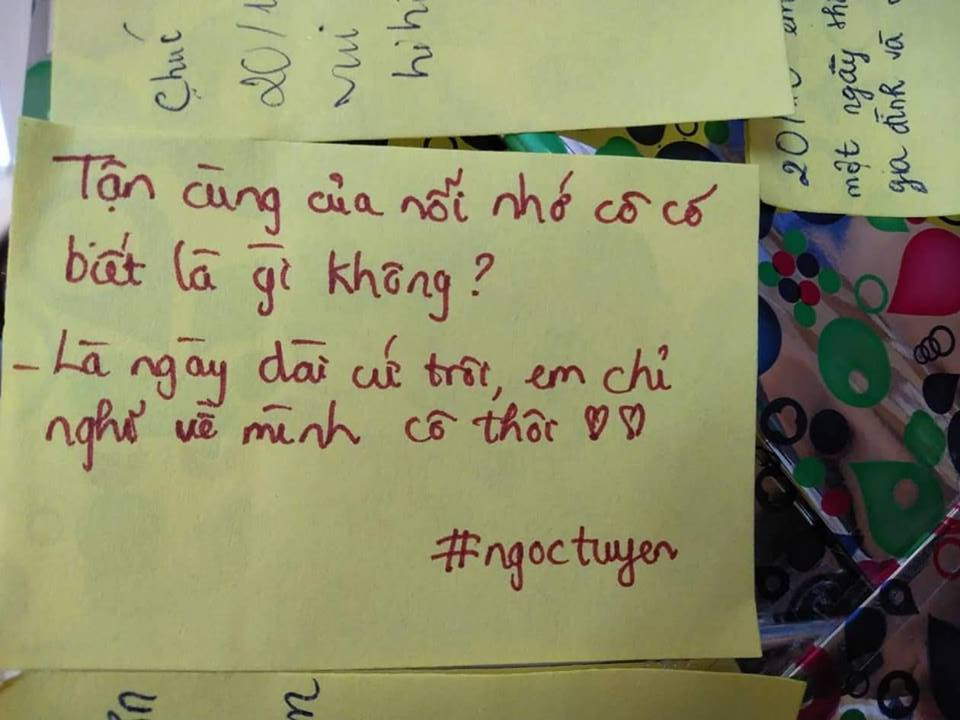 Chúc
20/1
vui
hihi
20/10 em
một ngày
gia đình và
Tận cùng của nỗi nhớ cô có
biết là gì không?
- Là ngày dài cứ trôi, em chỉ
nghĩ về mình cô thôi ♡♡
#ngoctuyen